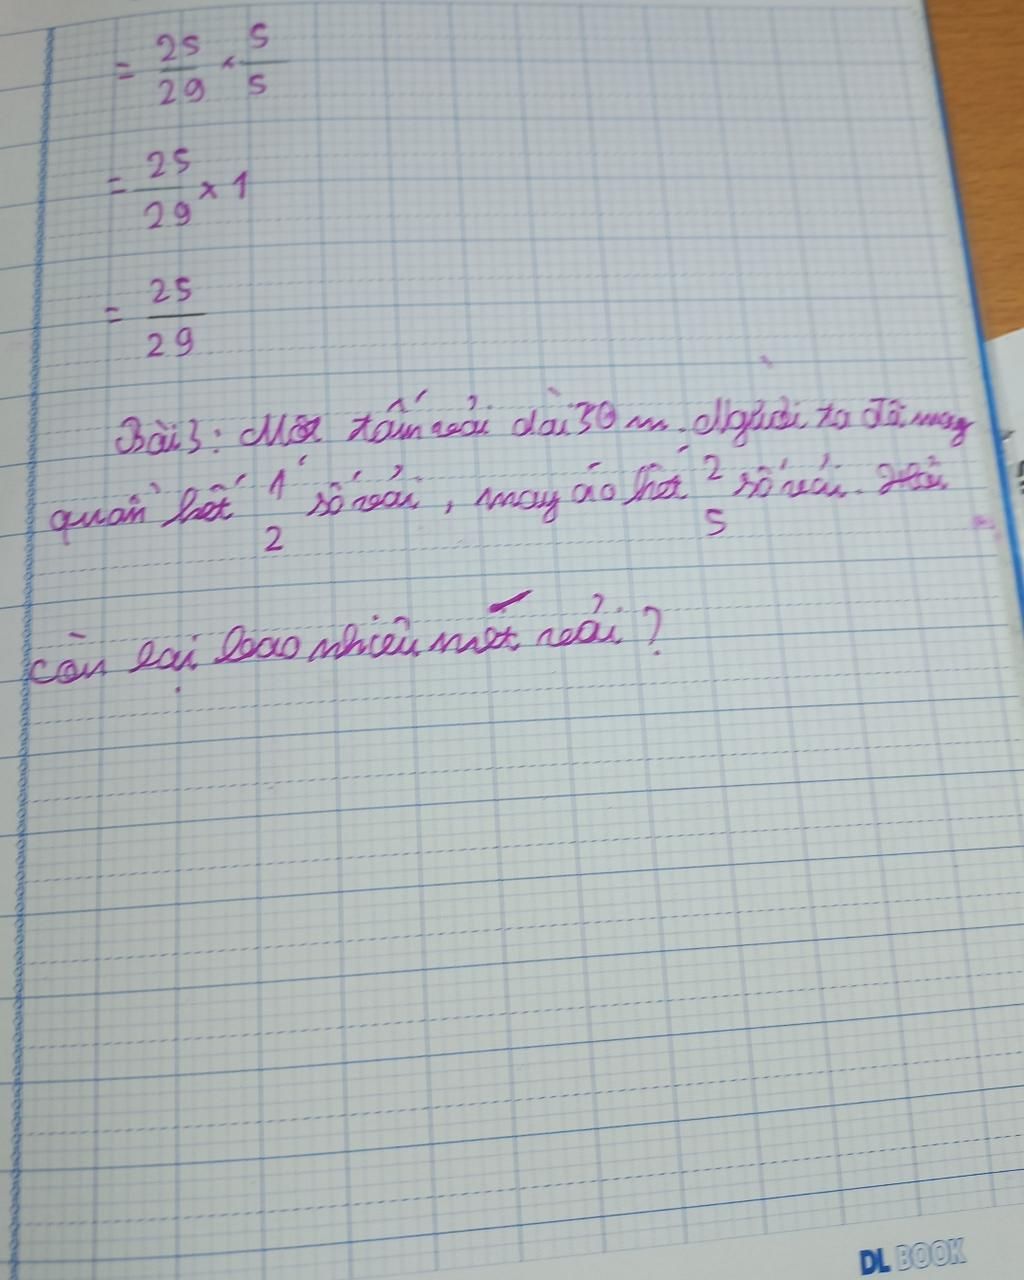 = 25/29 × 5/5
= 25/29 × 1
= 25/29
Bài 3: Một tấm vải dài 30 m. Người ta đã may
quần hết 1/2 số vải, may áo hết 2/5 số vải. Hỏi
còn lại bao nhiêu mét vải?
DL BOOK